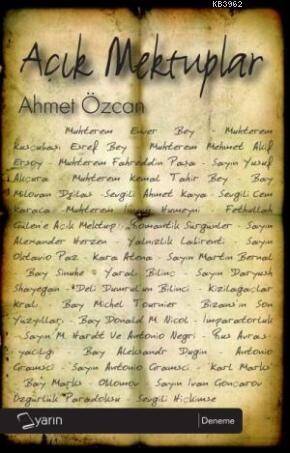 KB3962
Açık Mektuplar
Ahmet Özcan
Muhterem Enver Bey - Muhterem
Kuşçubaşı Eşref Bey - Muhterem Mehmet Akif
Ersoy - Muhterem Fahreddin Paşa - Sayın Yusuf
Akçura - Muhterem Kemal Tahir Bey - Bay
Milovan Dijlas - Sevgili Ahmet Kaya - Sevgili Cem
Karaca - Muhterem İmam Humeyni - Fethullah
Gülen'e Açık Mektup - Romantik Sürgünler - Sayın
Alexander Herzen - Yalnızlık Labirenti - Sayın
Oktavio Paz - Kara Atena - Sayın Martin Bernal
- Bay Sinuhe - Yaralı Bilinç - Sayın Daryush
Shayegan - Deli Dumrul'un Bilinci - Kızılağaçlar
Kralı - Bay Michel Tournier - Bizans'ın Son
Yüzyılları - Bay Donald M. Nicol - İmparatorluk
- Sayın M. Hardt Ve Antonio Negri - Rus Avras-
yacılığı - Bay Aleksandr Dugin - Antonio
Gramsci - Sayın Antonio Gramsci - Karl Marks
- Bay Marks - Oblomov - Sayın Ivan Goncarov
Özgürlük Paradoksu - Sevgili Hiçkimse
yarın
Deneme